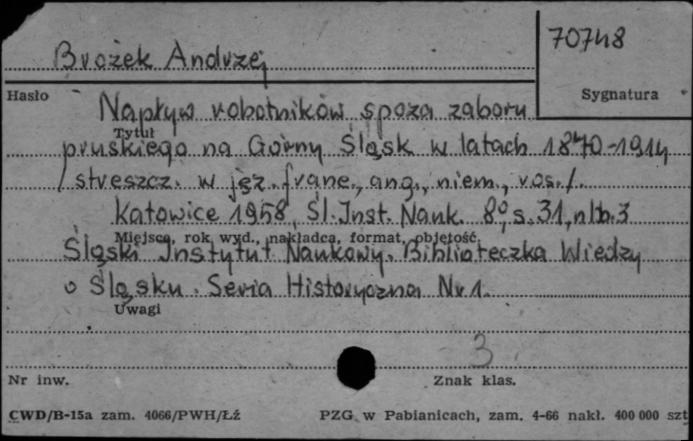 70748
Brożek Andrzej
Hasło
Sygnatura
Napływ robotników spoza zaboru
Tytuł
pruskiego na Górny Śląsk w latach 1870-1914
/streszcz. w jęz. franc., ang., niem., ros./.
Katowice 1958, Śl. Inst. Nauk. 8°, s. 31, nlb. 3
Miejsce, rok wyd., nakładca, format, objętość.
Śląski Instytut Naukowy. Biblioteczka Wiedzy
o Śląsku. Seria Historyczna Nr 1.
Uwagi
3
Nr inw.
Znak klas.
CWD/B-15a zam. 4066/PWH/Łź
PZG w Pabianicach, zam. 4-66 nakł. 400 000 szt